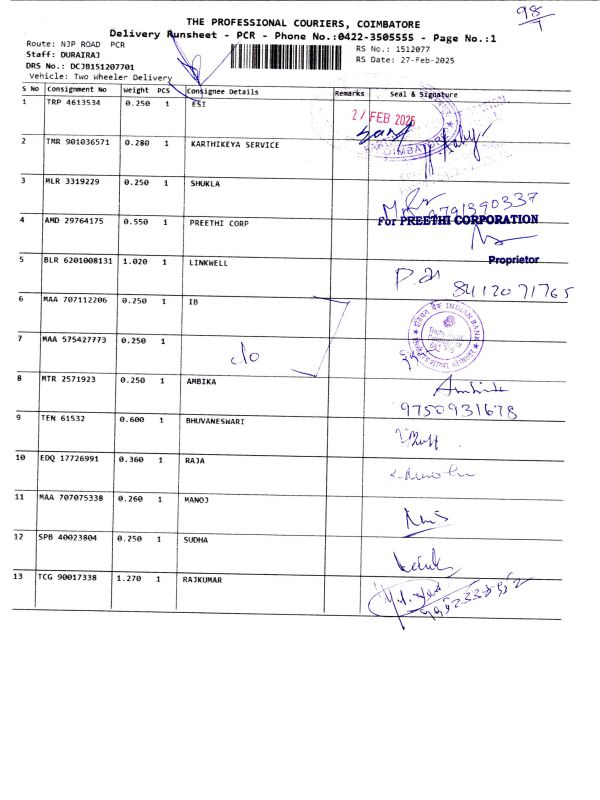 98/1
THE PROFESSIONAL COURIERS, COIMBATORE
Delivery Runsheet - PCR - Phone No.:0422-3505555 - Page No.:1
Route: NJP ROAD PCR
RS No.: 1512077
Staff: DURAIRAJ
RS Date: 27-Feb-2025
DRS No.: DCJB151207701
Vehicle: Two Wheeler Delivery
S No Consignment No Weight PCS Consignee Details Remarks Seal & Signature
1 TRP 4613534 0.250 1 ESI
2 / FEB 2025
COIMBATORE
2 TMR 901036571 0.280 1 KARTHIKEYA SERVICE
3 MLR 3319229 0.250 1 SHUKLA
9791390337
4 AMD 29764175 0.550 1 PREETHI CORP
For PREETHI CORPORATION
Proprietor
5 BLR 6201008131 1.020 1 LINKWELL
8412071765
6 MAA 707112206 0.250 1 IB
INDIAN BANK
7 MAA 575427773 0.250 1
c/o
8 MTR 2571923 0.250 1 AMBIKA
9750931678
9 TEN 61532 0.600 1 BHUVANESWARI
10 EDQ 17726991 0.360 1 RAJA
11 MAA 707075338 0.260 1 MANOJ
12 SPB 40023804 0.250 1 SUDHA
13 TCG 90017338 1.270 1 RAJKUMAR